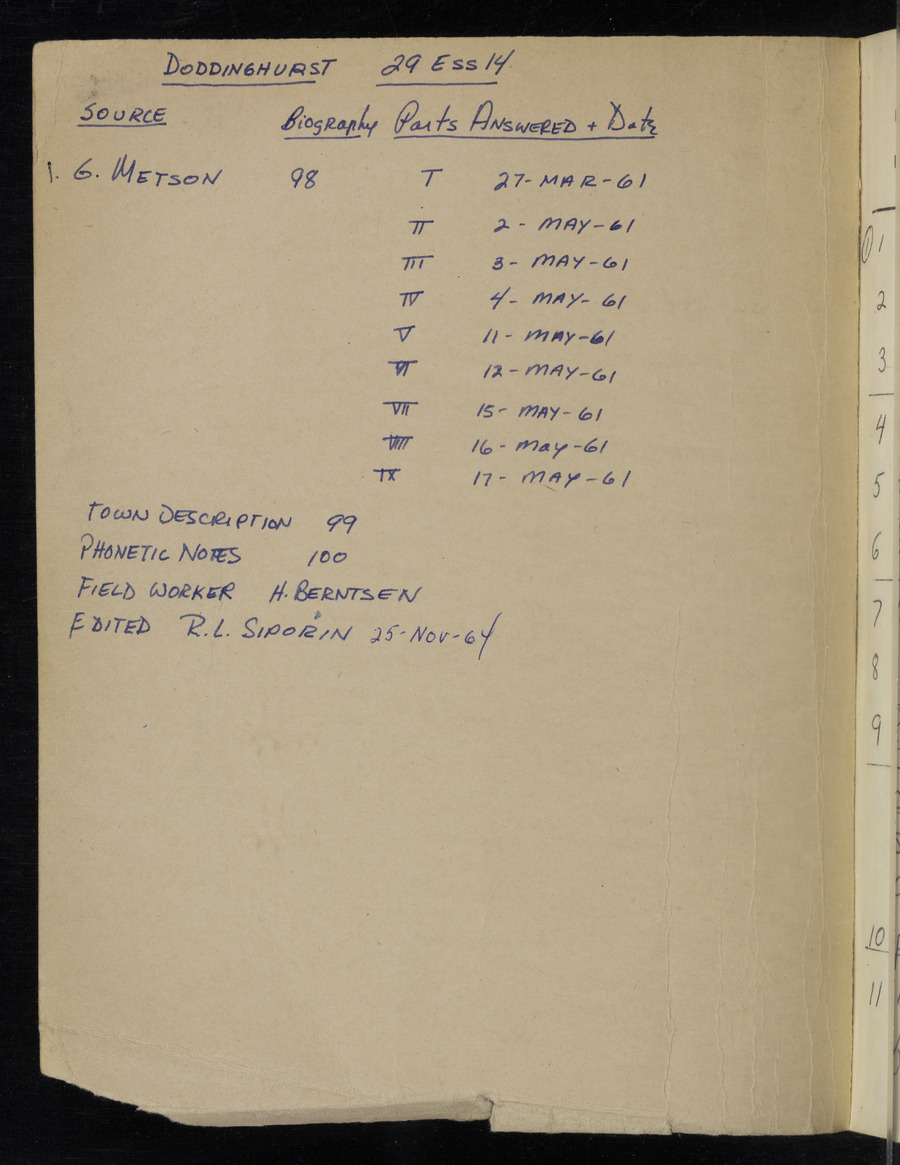 DODDINGHURST 29 ESS 14
SOURCE Biography Parts ANSWERED + Date
1. G. METSON 98 I 27-MAR-61
II 2-MAY-61
III 3-MAY-61
IV 4-MAY-61
V 11-MAY-61
VI 12-MAY-61
VII 15-MAY-61
VIII 16-May-61
IX 17-MAY-61
TOWN DESCRIPTION 99
PHONETIC NOTES 100
FIELD WORKER H. BERNTSEN
EDITED R.L. SIPORIN 25-NOV-64
1
2
3
4
5
6
7
8
9
10
11